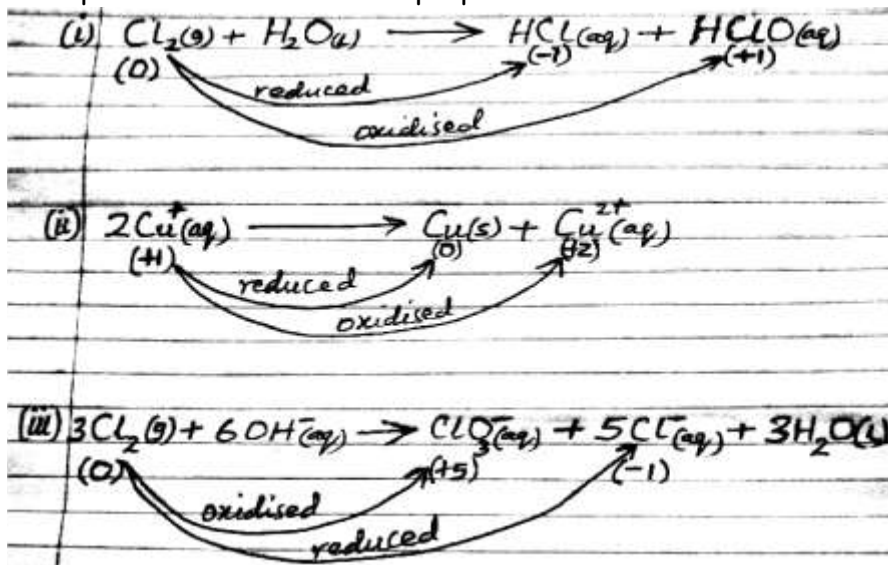 (i) Cl₂(g) + H₂O(l) ⟶ HCl(aq) + HClO(aq)
(0) (-1) (+1)
reduced
oxidised
(ii) 2Cu⁺(aq) ⟶ Cu(s) + Cu²⁺(aq)
(+1) (0) (+2)
reduced
oxidised
(iii) 3Cl₂(g) + 6OH⁻(aq) ⟶ ClO₃⁻(aq) + 5Cl⁻(aq) + 3H₂O(l)
(0) (+5) (-1)
oxidised
reduced